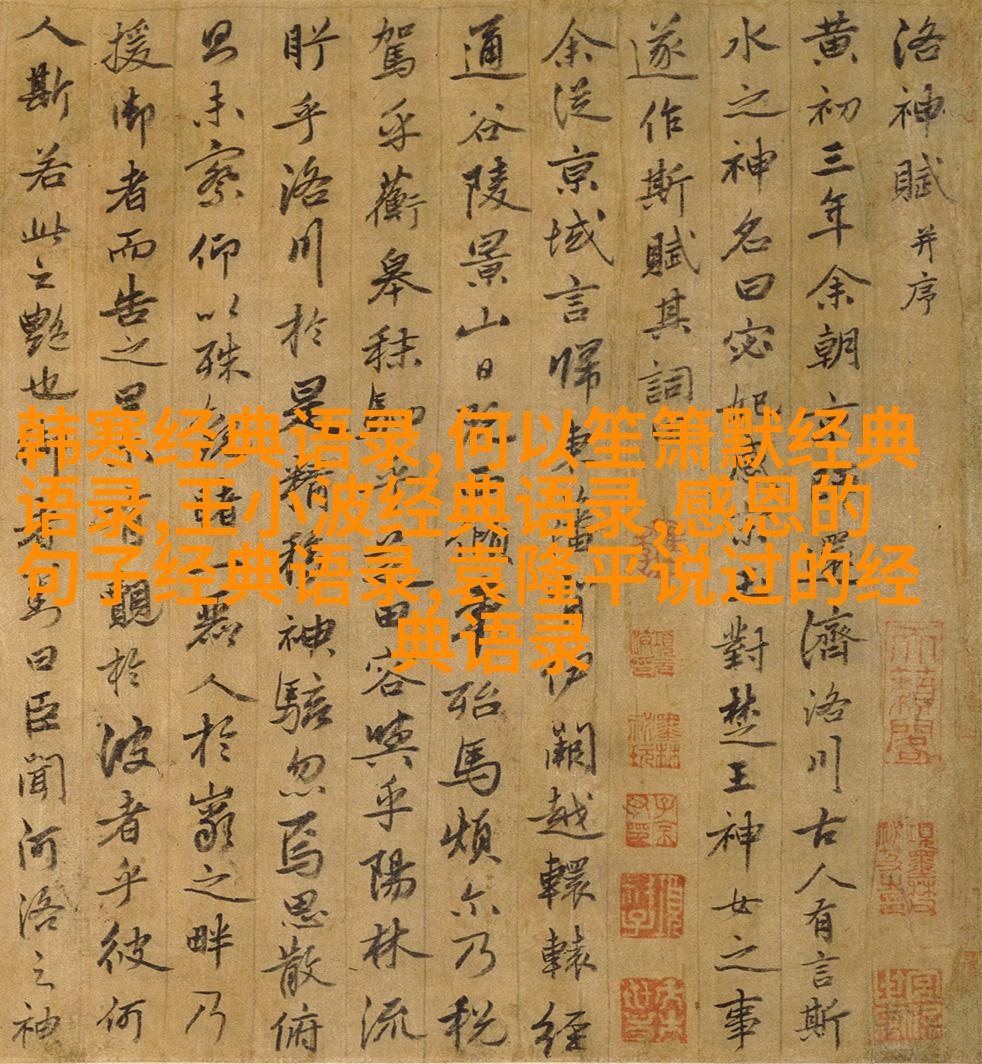 洛神賦并序
黄初三年余朝濟洛川古人有言斯
水之神名曰宓妃感宋玉對楚王神女之事
遂作斯賦其詞
余從京域言歸東藩伊闕越轘轅經
通谷陵景山日既西傾車殆馬煩尒乃税
駕乎蘅皋秣芝田容與乎陽林流
眄乎洛川於是精移神駭忽焉思散俯
未察仰以殊睹一麗人於巖之畔乃
援御者而告之曰覿於彼者乎彼何
人斯若此之艷也御者對曰臣聞河洛之神
韩寒经典语录,何以笙箫默经典
语录,王小波经典语录,感恩的
句子经典语录,袁隆平说过的经
典语录